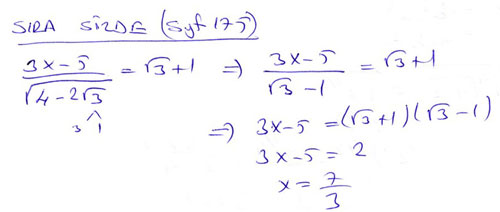 SIRA SİZDE (Syf 175)
(3x-5)/√(4-2√3) = √3+1 ⇒ (3x-5)/(√3-1) = √3+1
3 1
⇒ 3x-5 = (√3+1)(√3-1)
3x-5 = 2
x = 7/3